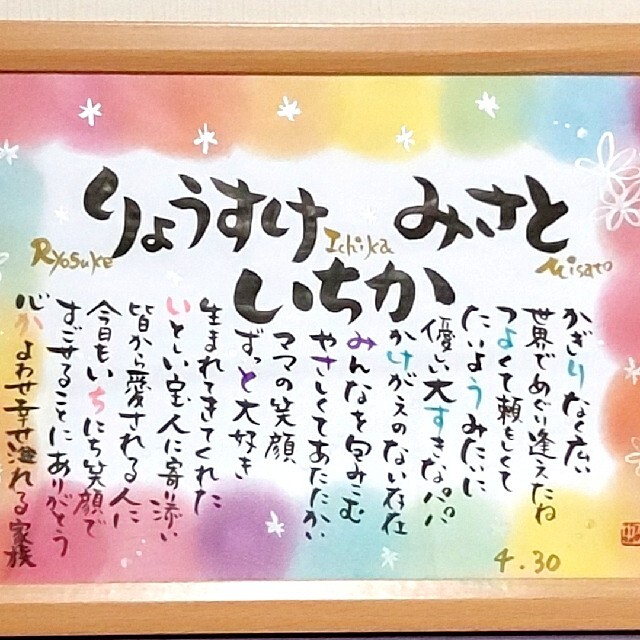 りょうすけ みさと
Ryosuke Ichika Misato
いちか
かぎりなく広い
世界でめぐり逢えたね
つよくて頼もしくて
たいようみたいに
優しい大すきなパパ
かけがえのない存在
みんなを包みこむ
やさしくてあたたかい
ママの笑顔
ずっと大好き
生まれてきてくれた
いとしい宝人に寄り添い
皆から愛される人に
今日もいちにち笑顔で
すごせることにありがとう
心かよわせ幸せ溢れる家族
4.30